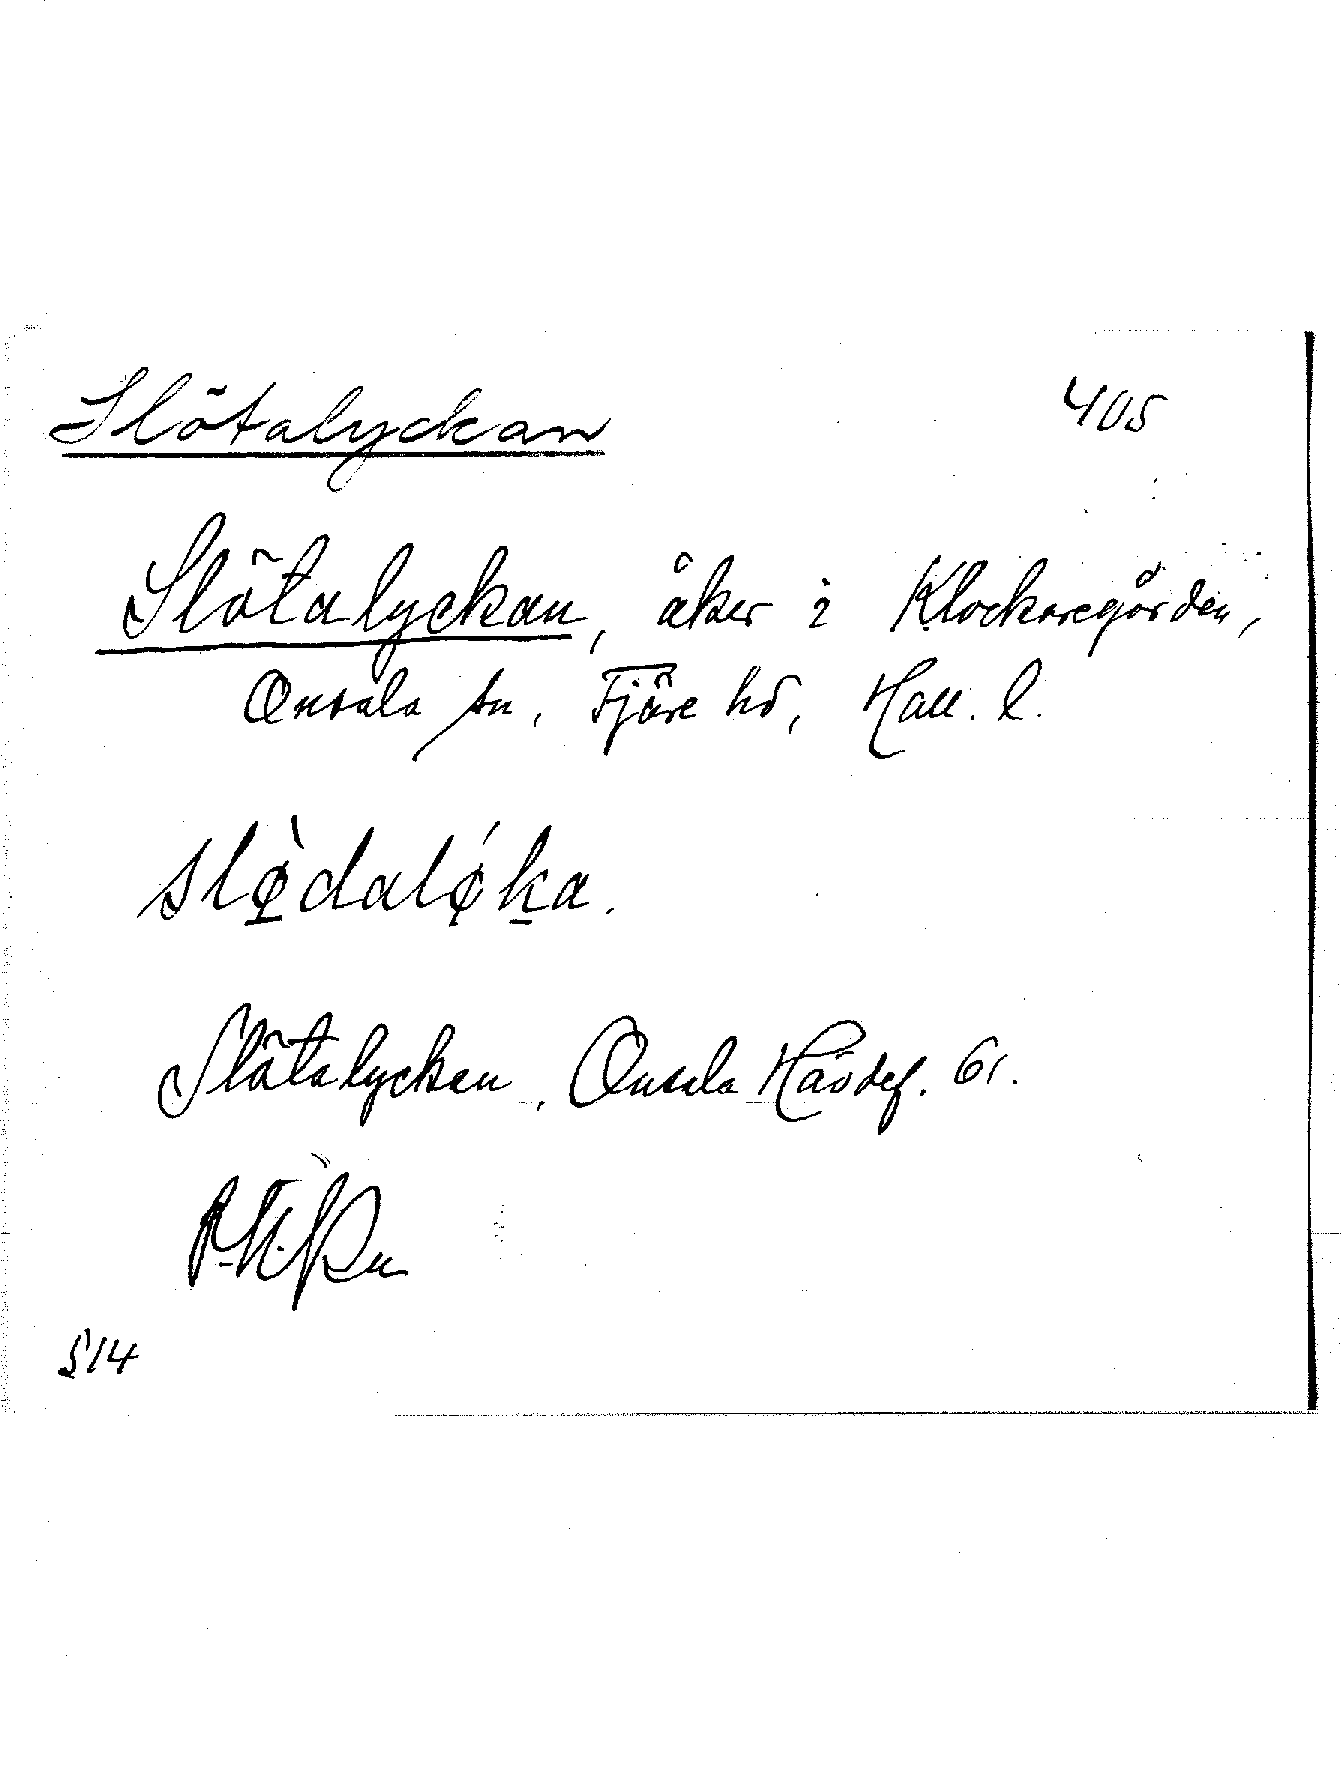 Slötalyckan 405
Slötalyckan, åker i Klockaregården,
Onsala sn, Fjäre hd, Hall. l.
slø̀dalǿka.
Slötalyckan, Onsala Hävdef. 61.
514